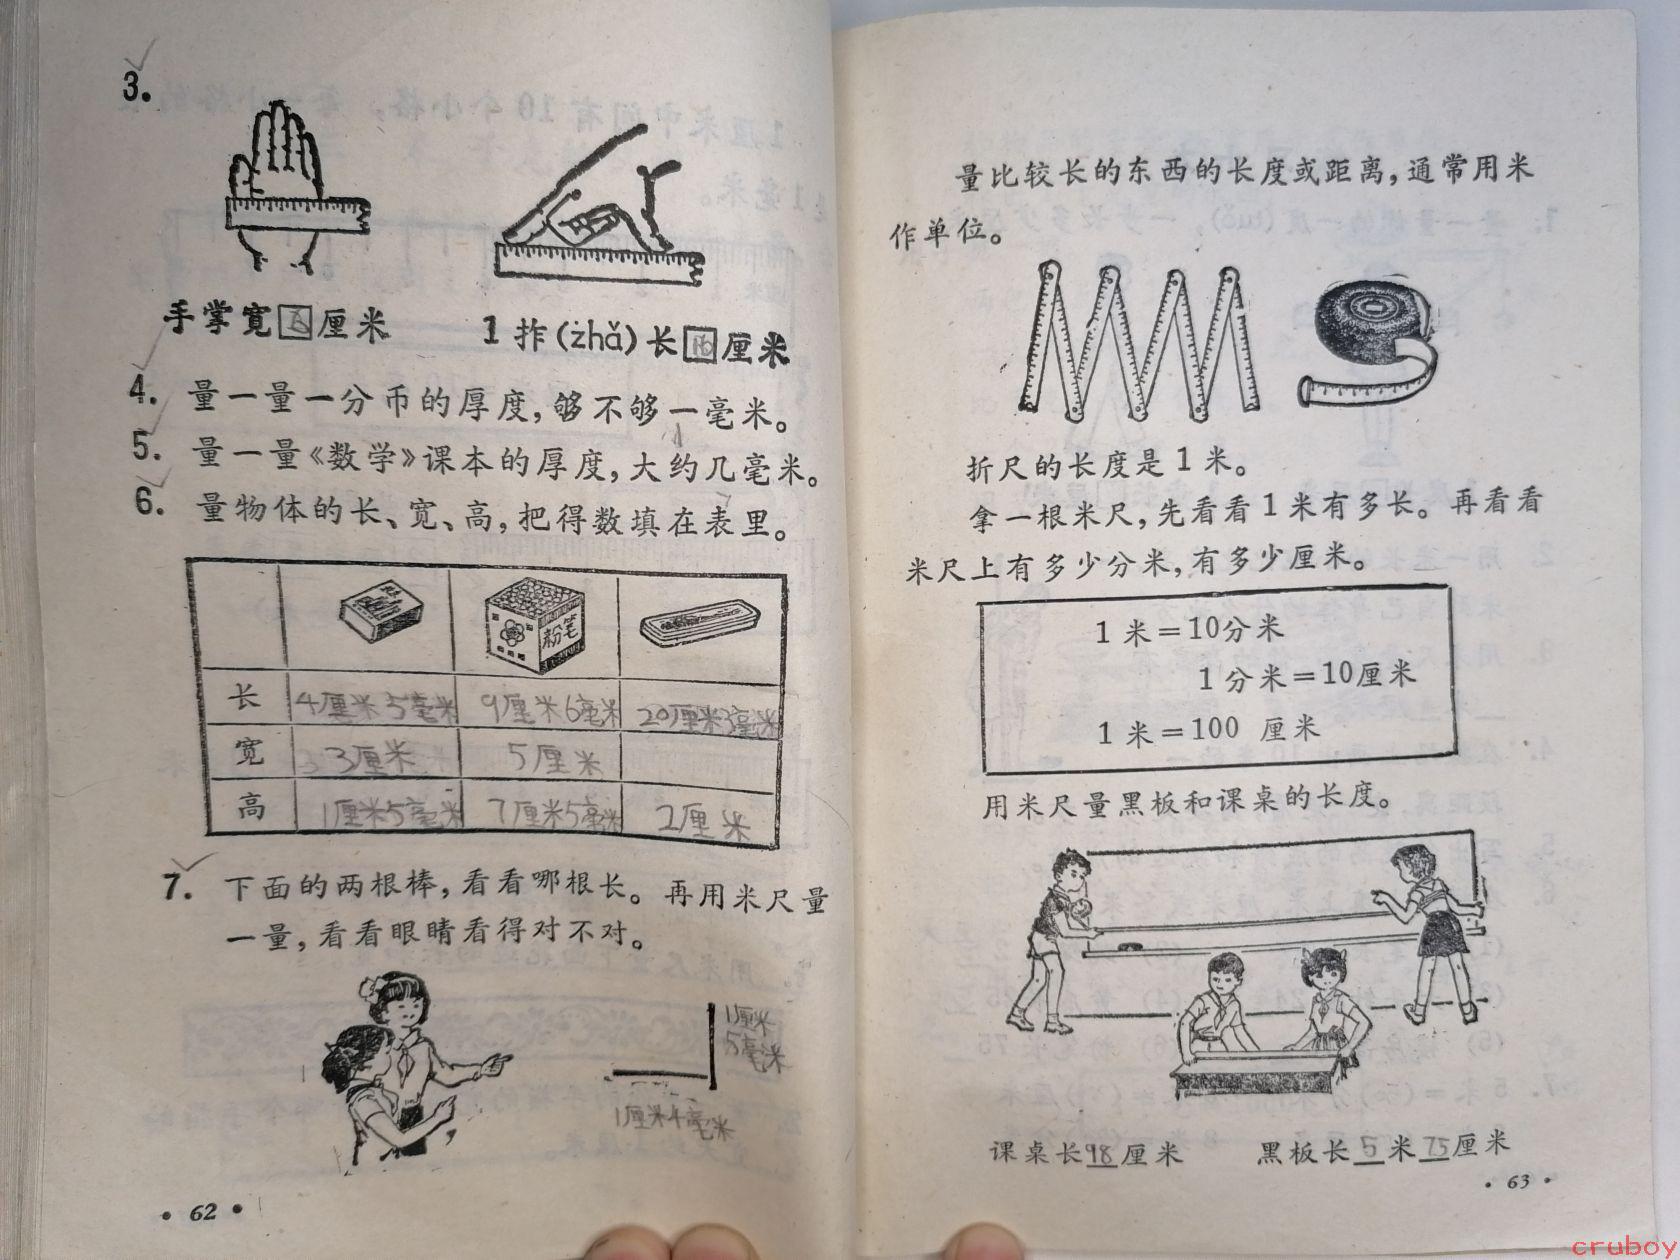 3.
手掌宽5厘米
1拃(zhǎ)长16厘米
4. 量一量一分币的厚度,够不够一毫米。
5. 量一量《数学》课本的厚度,大约几毫米。
6. 量物体的长、宽、高,把得数填在表里。
粉笔
长 4厘米5毫米 9厘米6毫米 20厘米3毫米
宽 3厘米 5厘米
高 1厘米5毫米 7厘米5毫米 2厘米
7. 下面的两根棒,看看哪根长。再用米尺量
一量,看看眼睛看得对不对。
1厘米
5毫米
1厘米4毫米
·62·
量比较长的东西的长度或距离,通常用米
作单位。
折尺的长度是1米。
拿一根米尺,先看看1米有多长。再看看
米尺上有多少分米,有多少厘米。
1米=10分米
1分米=10厘米
1米=100 厘米
用米尺量黑板和课桌的长度。
课桌长98厘米
黑板长5米75厘米
·63·
cruboy